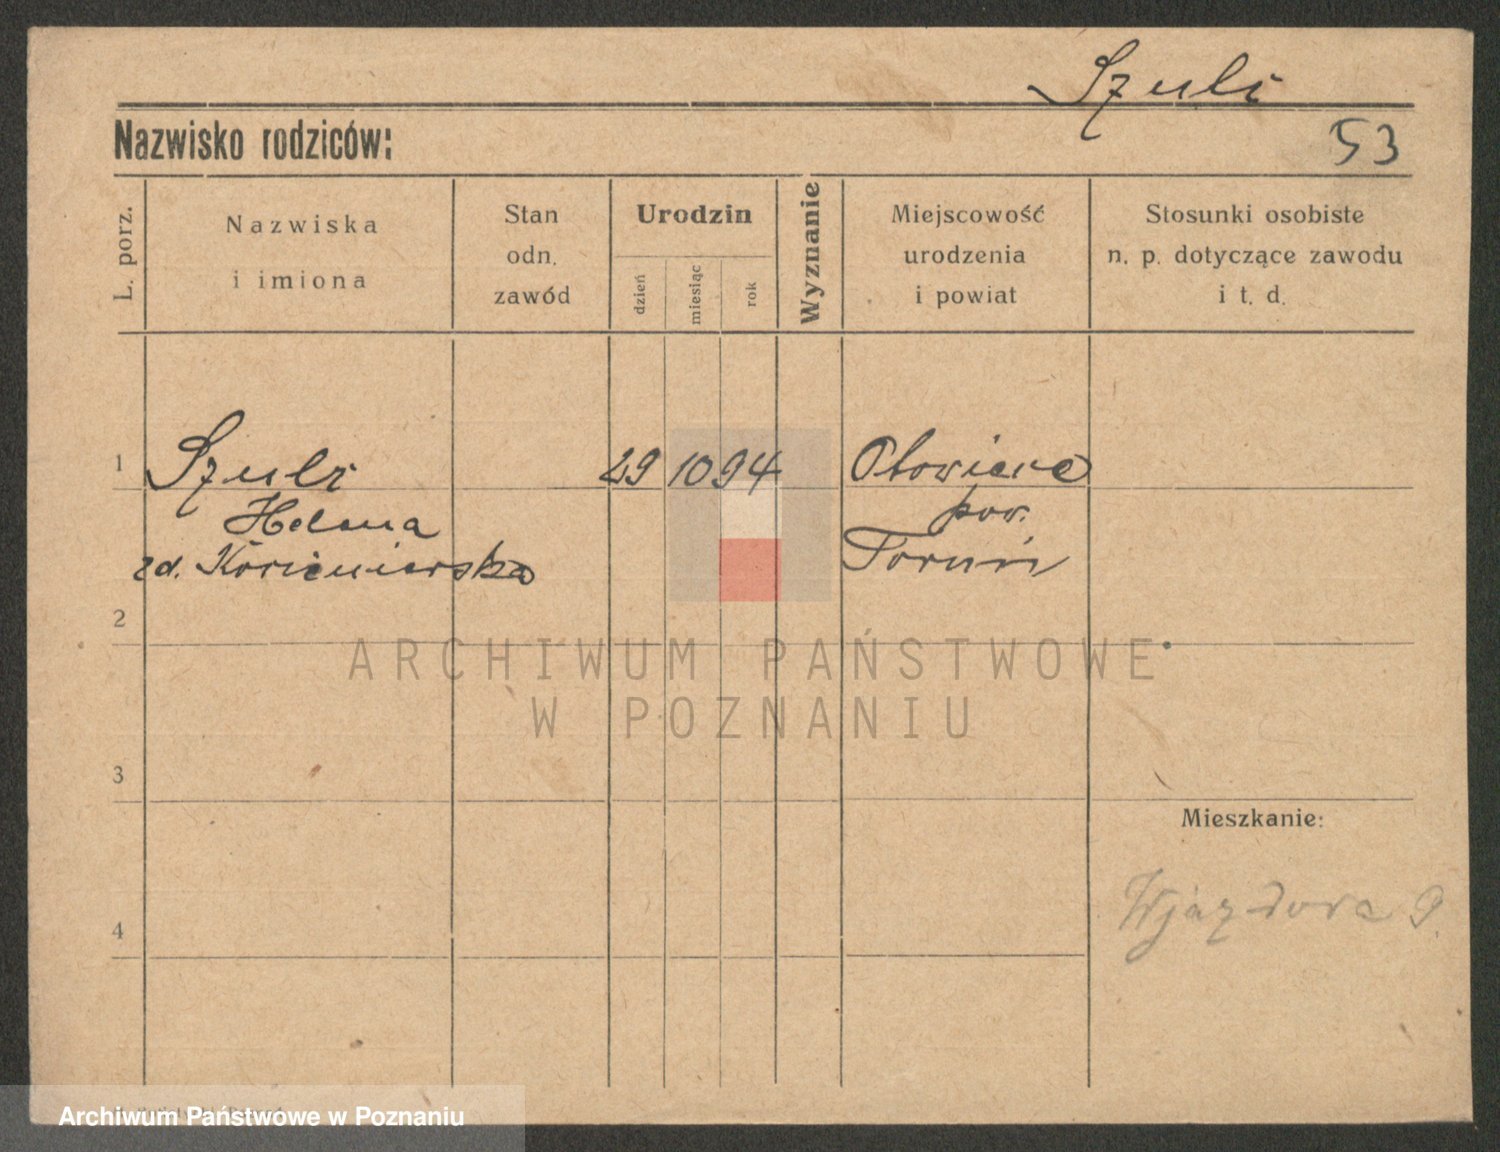 Szulc
Nazwisko rodziców:
53
L. porz.
Nazwiska
i imiona
Stan
odn.
zawód
Urodzin
dzień
miesiąc
rok
Wyznanie
Miejscowość
urodzenia
i powiat
Stosunki osobiste
n. p. dotyczące zawodu
i t. d.
1 Szulc 29 10 94
Helena pow.
zd. Toruń
2
ARCHIWUM PAŃSTWOWE
W POZNANIU
3
Mieszkanie:
4
9.
Archiwum Państwowe w Poznaniu